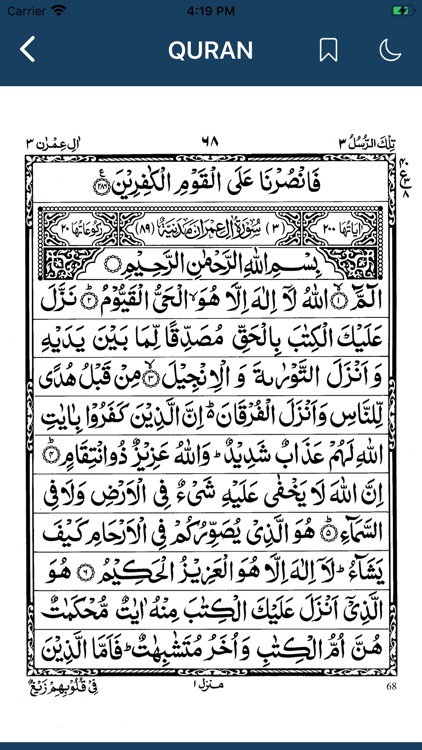 Carrier 4:19 PM
QURAN
تِلْكَ الرُّسُلُ ٣ ٦٨ اٰلِ عِمْرٰن ٣
فَانْصُرْنَا عَلَى الْقَوْمِ الْكٰفِرِيْنَ ﴿٢٨٦﴾ ع
اٰيَاتُهَا ٢٠٠ (٣) سُوْرَةُ اٰلِ عِمْرٰنَ مَدَنِيَّةٌ (٨٩) رُكُوْعَاتُهَا ٢٠
بِسْمِ اللّٰهِ الرَّحْمٰنِ الرَّحِيْمِ
الٓمّٓ ﴿١﴾ اللّٰهُ لَآ اِلٰهَ اِلَّا هُوَ الْحَيُّ الْقَيُّوْمُ ﴿٢﴾ نَزَّلَ
عَلَيْكَ الْكِتٰبَ بِالْحَقِّ مُصَدِّقًا لِّمَا بَيْنَ يَدَيْهِ
وَاَنْزَلَ التَّوْرٰىةَ وَ الْاِنْجِيْلَ ﴿٣﴾ مِنْ قَبْلُ هُدًى
لِّلنَّاسِ وَاَنْزَلَ الْفُرْقَانَ ؕ اِنَّ الَّذِيْنَ كَفَرُوْا بِاٰيٰتِ
اللّٰهِ لَهُمْ عَذَابٌ شَدِيْدٌ ؕ وَاللّٰهُ عَزِيْزٌ ذُوانْتِقَامٍ ﴿٤﴾
اِنَّ اللّٰهَ لَا يَخْفٰى عَلَيْهِ شَيْءٌ فِي الْاَرْضِ وَلَا فِي
السَّمَآءِ ﴿٥﴾ هُوَ الَّذِيْ يُصَوِّرُكُمْ فِي الْاَرْحَامِ كَيْفَ
يَشَآءُ ؕ لَآ اِلٰهَ اِلَّا هُوَ الْعَزِيْزُ الْحَكِيْمُ ﴿٦﴾ هُوَ
الَّذِيْٓ اَنْزَلَ عَلَيْكَ الْكِتٰبَ مِنْهُ اٰيٰتٌ مُّحْكَمٰتٌ
هُنَّ اُمُّ الْكِتٰبِ وَاُخَرُ مُتَشٰبِهٰتٌ ؕ فَاَمَّا الَّذِيْنَ
فِيْ قُلُوْبِهِمْ زَيْغٌ منزل ١ 68